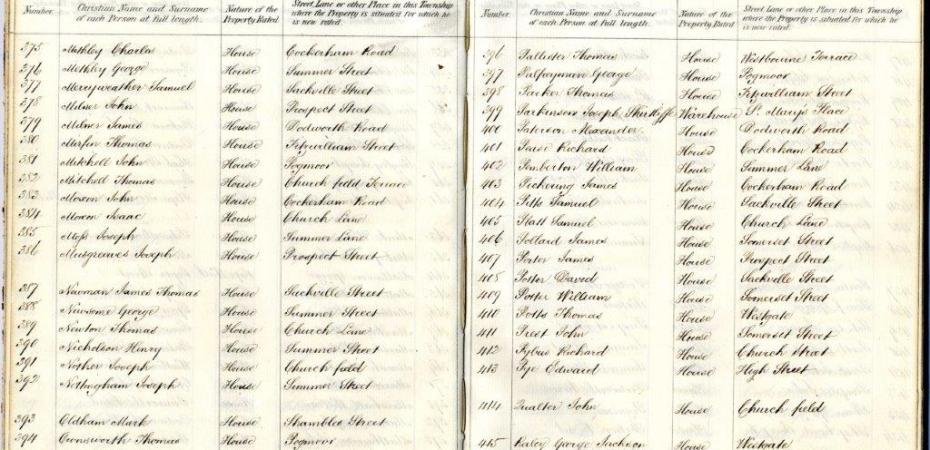 Number. Christian Name and Surname of each Person at full length. Nature of the Property Rated. Street Lane or other Place in this Township where the Property is situated for which he is now rated.
375 Methley Charles House Cockerham Road
376 Methley George House Summer Street
377 Merryweather Samuel House Sackville Street
378 Milner John House Prospect Street
379 Milner James House Dodworth Road
380 Mirfin Thomas House Fitzwilliam Street
381 Mitchell John House Pogmoor
382 Mitchell Thomas House Church field Terrace
383 Moxon John House Cockerham Road
384 Moxon Isaac House Church Lane
385 Moss Joseph House Summer Lane
386 Musgreaves Joseph House Prospect Street
387 Newman James Thomas House Sackville Street
388 Newsome George House Summer Street
389 Newton Thomas House Church Lane
390 Nicholson Henry House Summer Street
391 Nother Joseph House Church field
392 Nottingham Joseph House Summer Street
393 Oldham Mark House Shambles Street
394 Ownsworth Thomas House Pogmoor
Number. Christian Name and Surname of each Person at full length. Nature of the Property Rated. Street Lane or other Place in this Township where the Property is situated for which he is now rated.
396 Pallister Thomas House Westbourne Terrace
397 Palfreyman George House Pogmoor
398 Parker Thomas House Fitzwilliam Street
399 Parkinson Joseph Warehouse St. Mary's Place
400 Paterson Alexander House Dodworth Road
401 Pearse Richard House Cockerham Road
402 Pemberton William House Summer Lane
403 Pickering James House Cockerham Road
404 Pitts Samuel House Sackville Street
405 Platt Samuel House Church Lane
406 Pollard James House Somerset Street
407 Porter James House Prospect Street
408 Potter David House Sackville Street
409 Potter William House Somerset Street
410 Potts Thomas House Westgate
411 Prest John House Somerset Street
412 Pybus Richard House Church Street
413 Pye Edward House High Street
414 Qualter John House Church field
415 Raley George Jackson House Westgate